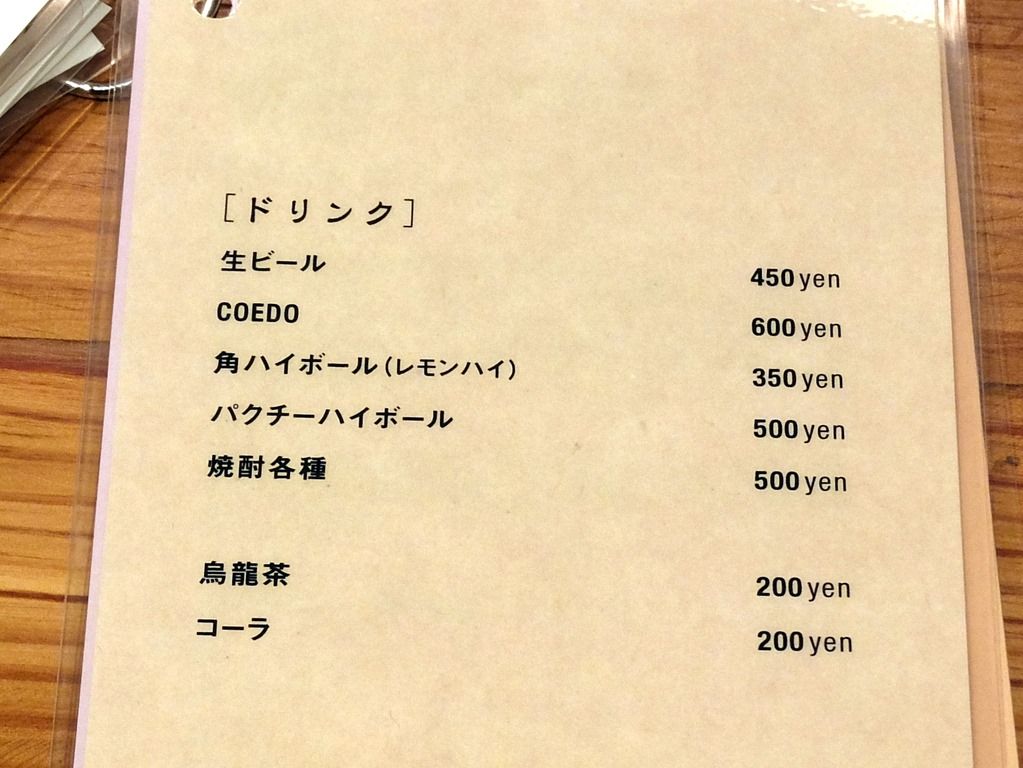 [ドリンク]
生ビール 450yen
COEDO 600yen
角ハイボール(レモンハイ) 350yen
パクチーハイボール 500yen
焼酎各種 500yen
烏龍茶 200yen
コーラ 200yen